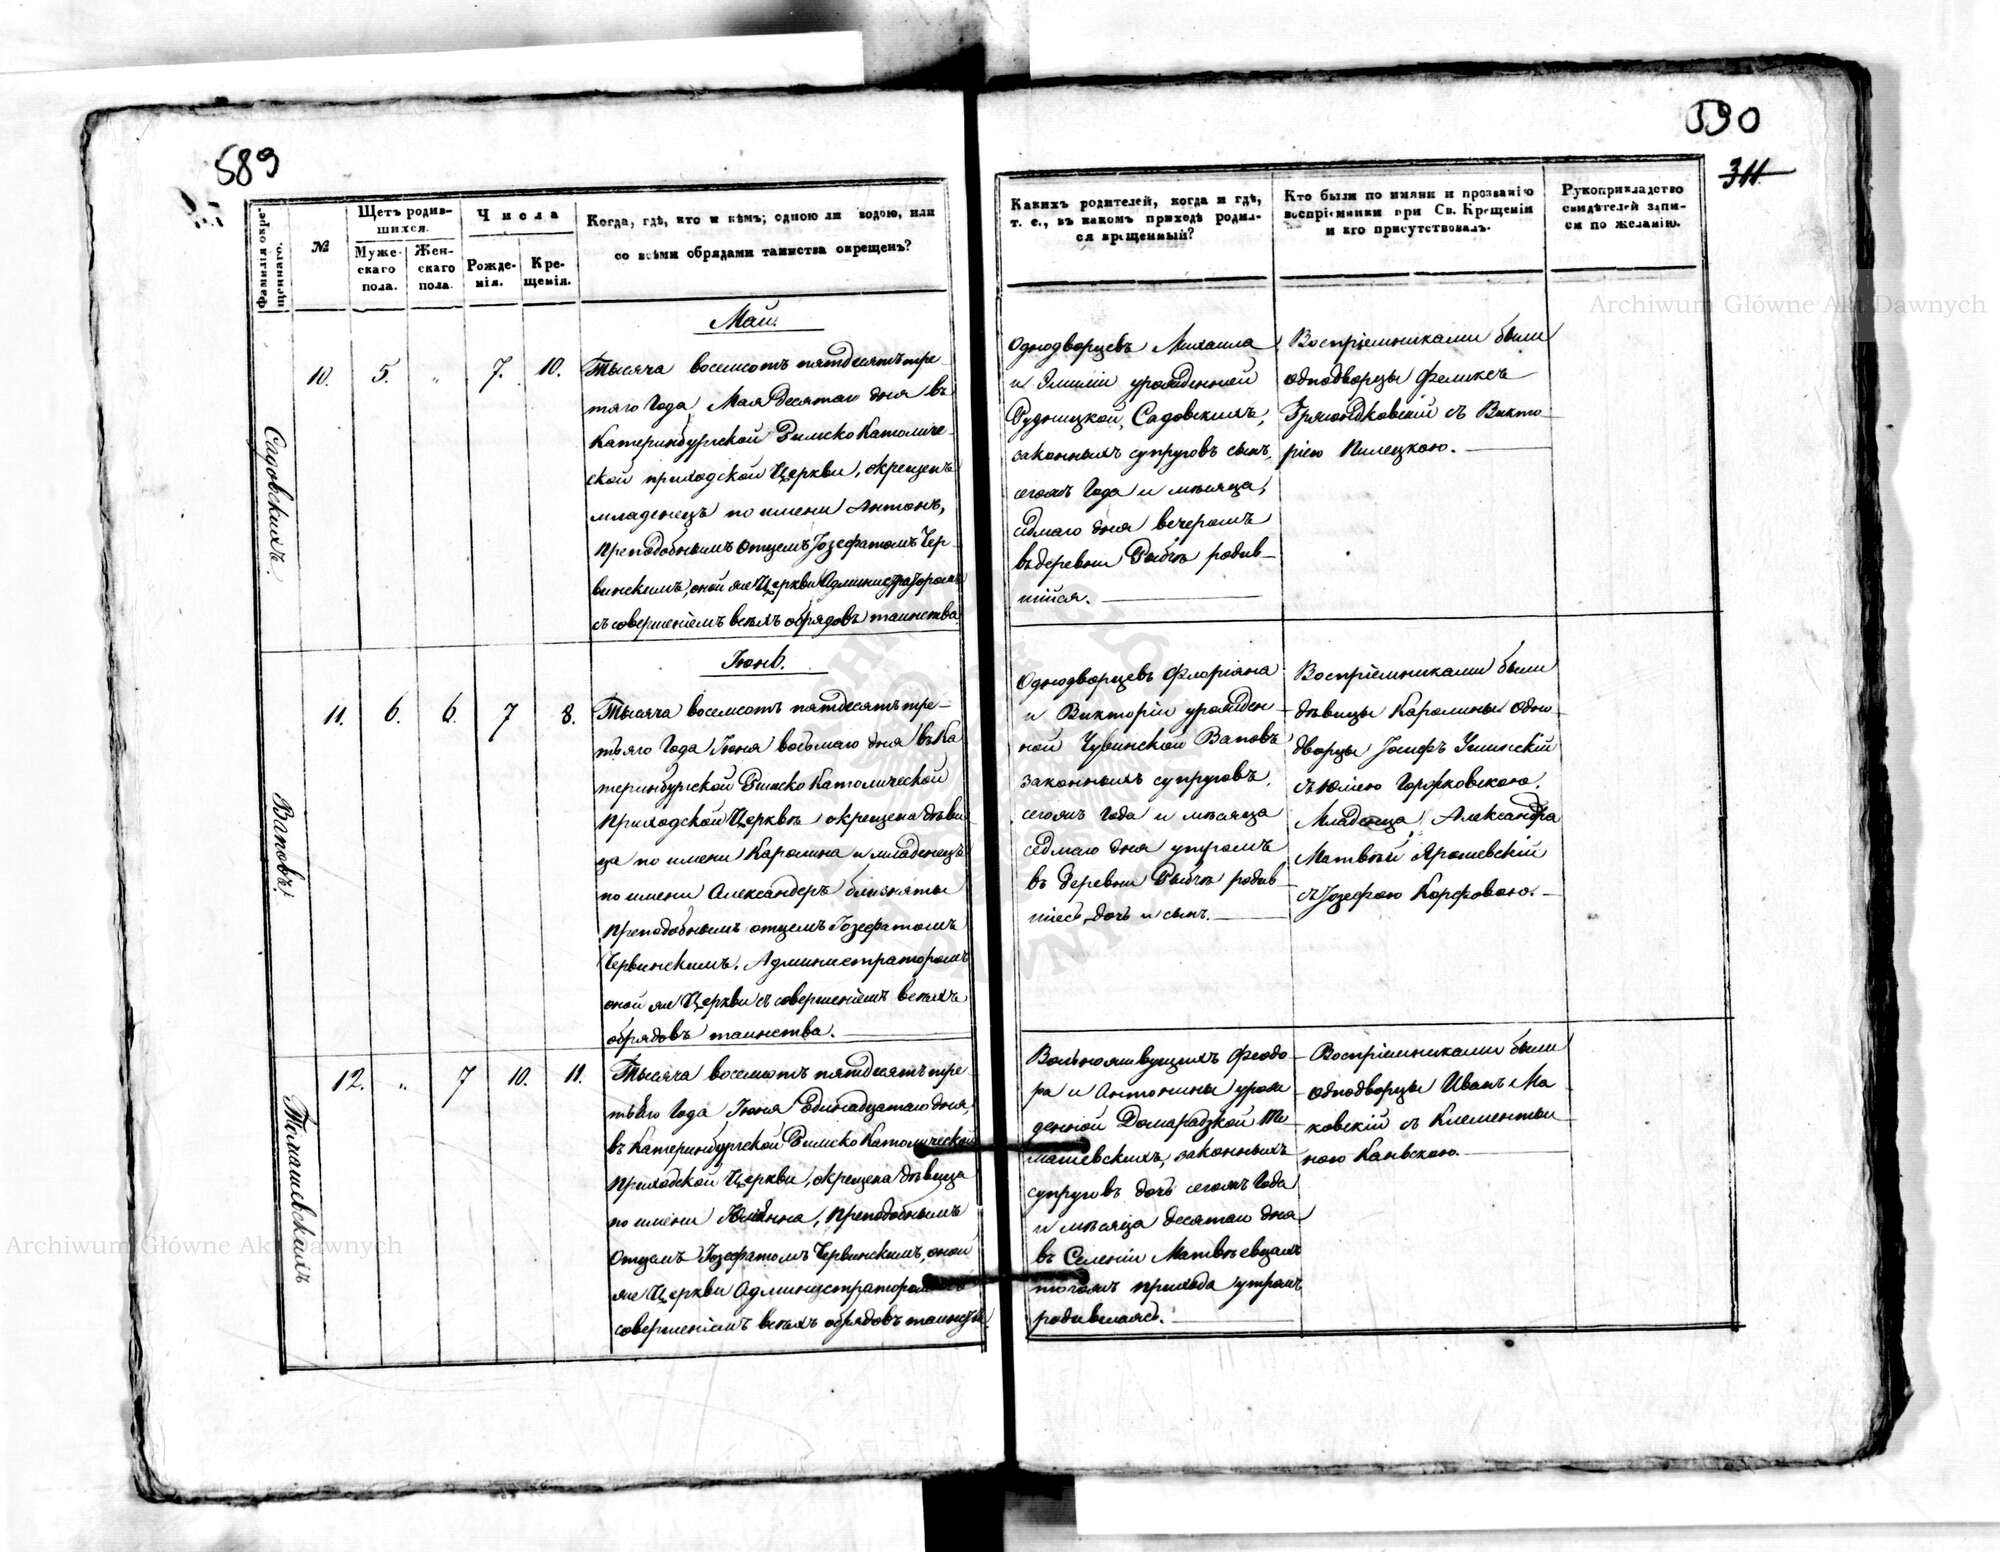 589
590
311
Фамилія окре-
щеннаго.
№
Щетъ родив-
шихся.
Муже-
скаго
пола.
Жен-
скаго
пола.
Числа
Рожде-
нія.
Кре-
щенія.
Когда, гдѣ, кто и кѣмъ; одною ли водою, или
со всѣми обрядами таинства окрещенъ?
Каихъ родителей, когда и гдѣ,
т. е., въ какомъ приходѣ родил-
ся крещенный?
Кто были по имяни и прозванію
воспріемники при Св. Крещеніи
и кто присутствовалъ.
Рукоприкладство
свидѣтелей запи-
си по желанію.
Май.
Садовскихъ.
10.
5.
„
7.
10.
Тысяча восемсотъ пятдесятъ тре-
тяго Года, Мая Десятаго дня въ
Катеринбургской Римско Католиче-
ской приходской Церкви, окрещенъ
младенецъ по имени Антонъ,
Преподобнымъ Отцемъ Іозефатомъ Чер-
винскимъ, оной же Церкви Администраторомъ
съ совершеніемъ всѣхъ обрядовъ таинства
Однодворцевъ Михаила
и Эмиліи урожденной
Рудницкой, Садовскихъ,
законныхъ супруговъ сынъ,
сегожъ Года и мѣсяца,
седмаго дня вечеромъ
въ деревни Рыбчѣ родив-
шійся.
Воспріемниками были
однодворцы Феликсъ
съ Викто-
ріею Пилецкою.
Іюнь.
Ваповъ.
11.
6.
6.
7
8.
Тысяча восемсотъ пятдесятъ тре-
тьяго Года Іюня восьмаго дня въ Ка
теринбургской Римско Католической
Приходской Церквѣ окрещена дѣви
ца по имени Каролина и младенецъ
по имени Александеръ близняты
Преподобнымъ отцемъ Іозефатомъ
Червинскимъ, Администраторомъ
оной же Церкви съ совершеніемъ всѣхъ
обрядовъ таинства.
Однодворцевъ Флоріана
и Викторіи урожден-
ной Чувинской Ваповъ
законныхъ супруговъ,
сегожъ Года и мѣсяца
седмаго дня утромъ
въ деревни Рыбчѣ родив-
шіесь, дочь и сынъ.
Воспріемниками были
дѣвицы Каролины одно-
дворцы Іосифъ
съ Юліею
Младенца Александра
Матвѣй Ярошевскій
съ Іозефою Корфовою.
Томашевскихъ
12.
„
7
10.
11.
Тысяча восемсотъ пятдесятъ тре
тьяго Года Іюня Одинадцатаго дня,
въ Катеринбургской Римско Католической
Приходской Церкви, окрещена дѣвица
по имени Юліанна, Преподобнымъ
Отцемъ Іозефатомъ Червинскимъ, оной
же Церкви Администраторомъ съ
совершеніемъ всѣхъ обрядовъ таинства
Вольноживущихъ Феодо-
ра и Антонины урож
денной Домарадзкой То
машевскихъ, законныхъ
супруговъ дочь сегожъ Года
и мѣсяца десятаго дня
въ Селеніи Матвѣевцахъ
тогожъ прихода утромъ
родившаясь.
Воспріемниками были
однодворцы Иванъ Ма
ковскій съ Клементи
ною Канвскою.
Archiwum Główne Akt Dawnych
Archiwum Główne Akt Dawnych